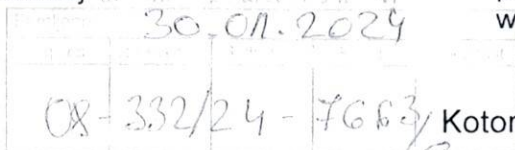 30.01.2024 w
08-332/24-7663/ Kotor